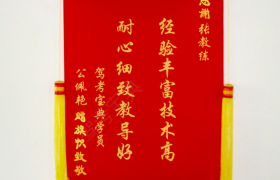 感谢张教练
经验丰富技术高
耐心细致教导好
驾考宝典学员
公佩艳赠旗祝致敬